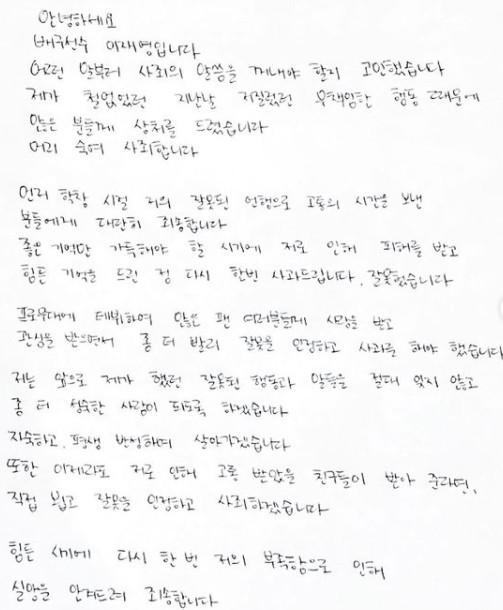 안녕하세요
배구선수 이재영입니다
어떤 말부터 사죄의 말씀을 꺼내야 할지 고민했습니다
제가 철없었던 지난날 저질렀던 무책임한 행동 때문에
많은 분들께 상처를 드렸습니다
머리 숙여 사죄합니다
먼저 학창 시절 저의 잘못된 언행으로 고통의 시간을 보낸
분들에게 대단히 죄송합니다
좋은 기억만 가득해야 할 시기에 저로 인해 피해를 받고
힘든 기억을 드린 점 다시 한번 사과드립니다. 잘못했습니다
프로무대에 데뷔하여 많은 팬 여러분들께 사랑을 받고
관심을 받으면서 좀 더 빨리 잘못을 인정하고 사죄를 해야 했습니다
저는 앞으로 제가 했던 잘못된 행동과 말들을 절대 잊지 않고
좀 더 성숙한 사람이 되도록 하겠습니다
자숙하고, 평생 반성하며 살아가겠습니다
또한 이제라도 저로 인해 고통 받았을 친구들이 받아 준다면,
직접 뵙고 잘못을 인정하고 사죄하겠습니다
힘든 시기에 다시 한 번 저의 부족함으로 인해
실망을 안겨드려 죄송합니다